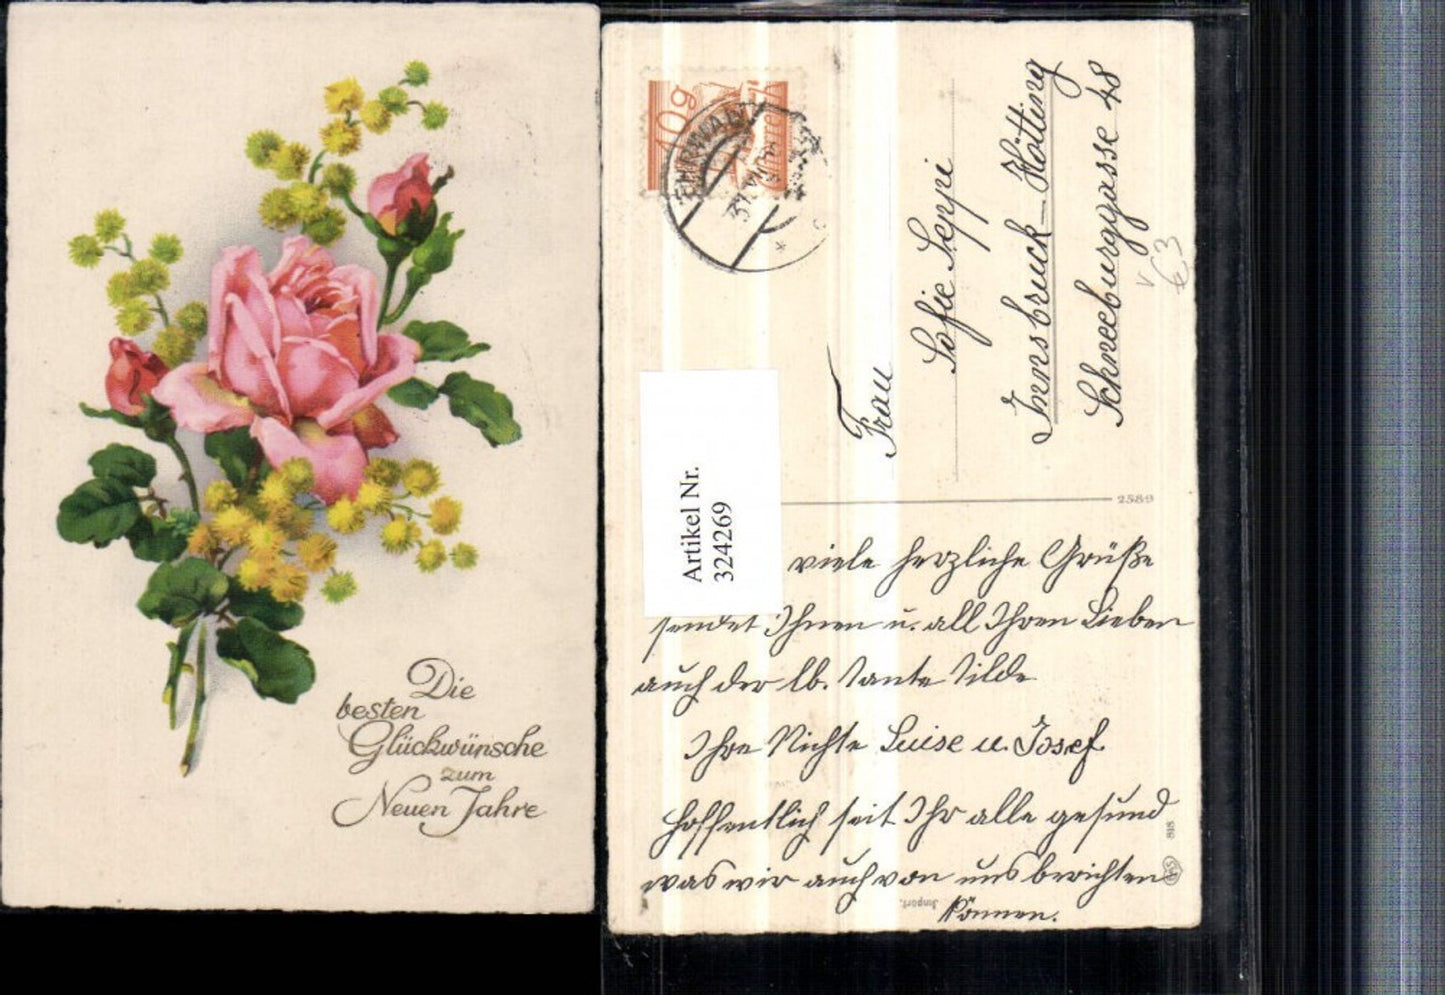 Die
besten
Glückwünsche
zum
Neuen Jahre
10g
Artikel Nr.
324269
Frau
Sofie Seppi
Innsbruck-Hötting
Schneeburggasse 48
63
2589
viele herzliche Grüße
sendet Ihnen u. all Ihren Lieben
auch der lb. Tante Tilde
Ihre Nichte Luise u. Josef.
Hoffentlich seit Ihr alle gesund
was wir auch von uns berichten
können.
818
Import.